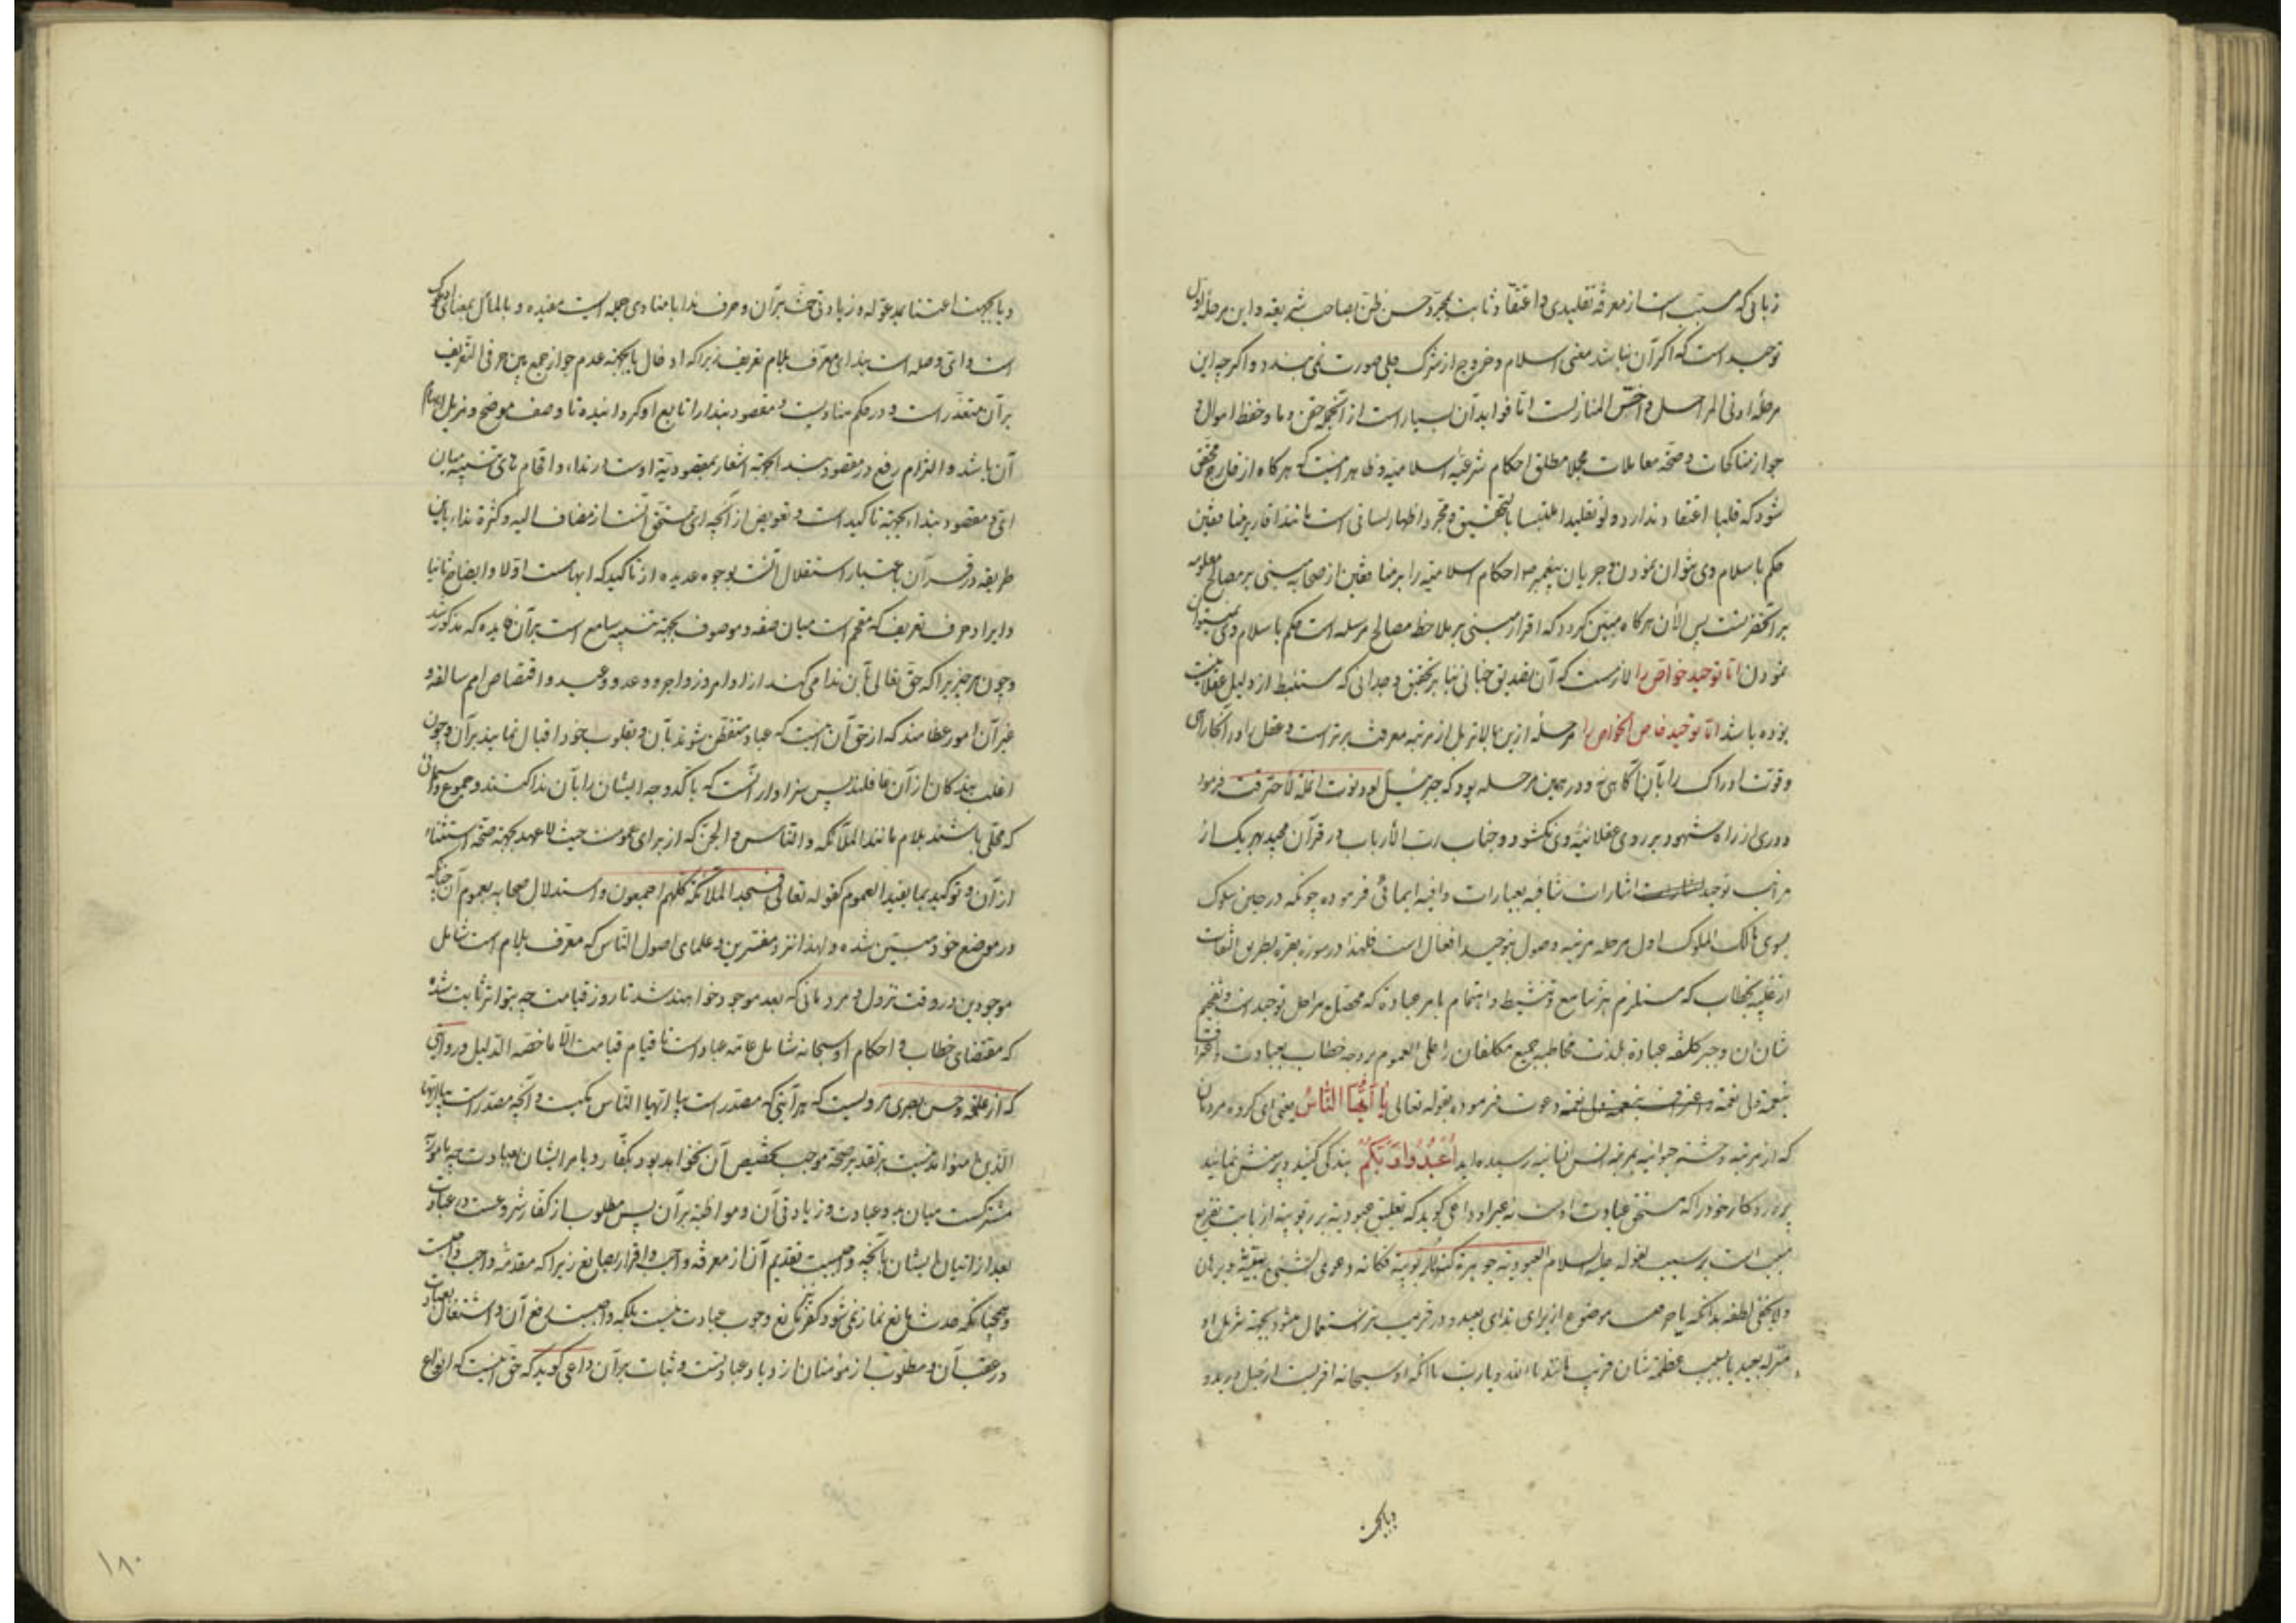 زبانی که مسبب است از معرفه تقلیدی و اعتقاد ثابت بمجرد حسن ظن بصاحب شریعه و این مرحله اول
توحید است که اگر آن نباشد معنی اسلام و خروج از شرک جلی صورت نمی بندد و اگرچه این
مرحله ادنی المراحل و اخس المنازلست اما فواید آن بسیار است از آنجمله حقن دما و حفظ اموال و
جواز مناکحات و صحة معاملات مجملا مطلق احکام شرعیه اسلامیه و ظاهر اینست که هرگاه از خارج محقق
شود که قلبا اعتقاد ندارد و لو تقلیدا و مجرد اظهار لسانی است مانند اقاریر منافقین
حکم باسلام وی نتوان نمودن و جریان پیغمبر ص احکام اسلامیه را بر منافقین از صحابه مبنی بر مصالح معلومه
بر آنحضرتست پس الآن هرگاه مبین گردد که اقرار مبنی بر ملاحظه مصالح مرسله است حکم باسلام وی نمیتوان
نمودن اما توحید خواص را لازمست که آن تصدیق جنانی بنا بر تحقیق وجدانی که مستنبط از دلیل عقلانیت
بوده باشد اما توحید خاص الخواص را مرحله ازین بالاتر بل از مرتبه معرفت برتر است و عقل را در انکار آن
و قوت ادراک را بآن آگاهی نه و در همین مرحله بود که جبرئیل لو دنوت انملة لاحترقت فرمود
و دری از راه شهود بر روی عقلانیة وی نگشود و جناب رب الارباب در قرآن مجید بهر یک از
مراتب توحید اشارات شافیه بعبارات وافیه ایمائی فرموده چونکه در حین سلوک
بسوی مالک الملوک اول مرحله مرتبه وصول بتوحید افعال است فلهذا در سوره بقره بطریق التفات
از غیبة بخطاب که مستلزم هز سامع و تنشیط و اهتمام بامر عبادة که محصل مراحل توحید است و تفخیم
شان آن و جبر کلفه عبادة بلذت مخاطبه جمیع مکلفان را علی العموم بر وجه خطاب بعبادت و اعتراف
بنعمة ولی نعمة دعوت فرموده بقوله تعالی یَا أَیُّهَا النَّاسُ یعنی ای گروه مردمان
که از مرتبه وحشة حیوانیه بمرتبه انس انسانیه رسیده اید اُعْبُدُوا رَبَّکُمُ بندگی کنید و پرستش نمائید
پروردگار خود را که مستحق عبادت اوست نه غیر او داعی گوید که تعلیق عبودیة بر ربوبیة از بابت تفریع
مسبب است بر سبب لقوله علیه السلام العبودیة جوهرة کنهها الربوبیة فکأنه دعوی الشیئ ببینة و برهان
ولا یخفی لطفه بدانکه یا حرفیست موضوع از برای ندای بعید و در قریب نیز استعمال میشود بجهة تنزیل او
منزله بعید یا بسبب عظمة شان قریب مانند یا الله و یا رب با آنکه او سبحانه اقربست از حبل ورید و
و یا بجهت
و یا بجهت اعتنا بمدعو له و زیادتی حث بر آن و حرف ندا با منادی جمله ایست مفیده و بالمآل بمعنای ادعوک
است و ای وصله است بندای معرف بلام تعریف زیرا که ادخال یا بجهة عدم جواز جمع بین حرفی التعریف
بر آن متعذر است و در حکم منادیست و مقصود بندا را تابع او گردانیده تا وصف موضح و مزیل ابهام
آن باشد و التزام رفع در مقصود بندا بجهة اشعار بمقصودیة اوست در ندا و اقحام های تنبیه میان
ای و مقصود بندا بجهة تاکید است و تعویض از آنچه ای مستحق آنست از مضاف الیه و کثرة ندا باین
طریقه در قرآن باعتبار استقلال آنست بوجوه عدیده از تاکید که ابهامست اولا و ایضاح ثانیا
و ایراد حرف تعریف که مقحم است میان صفه و موصوف بجهة تنبیه سامع است بر آن فایده که مذکور شد
و چون هر چیزیرا که حق تعالی بآن ندا می کند از اوامر و زواجر و وعد و وعید و اقتصاص امم سالفه و
غیر آن امور عظامند که از حق آن اینست که عباد متفطن شوند بآن و بقلوب خود اقبال نمایند بر آن و چون
اغلب بندگان از آن غافلند پس سزاوار آنست که باکد وجه ایشان را بآن ندا کنند و جموع و اسمائی
که محلی باشند بلام مانند الملائکه و الناس و الجن که از برای عمومست حیث لا عهد بجهة صحة استثناء
از آن و توکید بما یفید العموم کقوله تعالی فسجد الملائکة کلهم اجمعون و استدلال صحابه بعموم آن چنانکه
در موضع خود مبین شده و لهذا نزد مفسرین و علمای اصول الناس که معرف بلام است شامل
موجودین در وقت نزول و مردمانی که بعد موجود خواهند شد تا روز قیامت چه بتواتر ثابت شده
که مقتضای خطاب و احکام او سبحانه شامل عامه عباد است تا قیام قیامت الا ما خصه الدلیل و روایتی
که از علقمه و حسن بصری مرویست که هر آیتی که مصدر است بیا ایها الناس مکیست و آنچه مصدر است بیا ایها
الذین آمنوا مدنیست بر تقدیر صحة موجب تخصیص آن نخواهد بود بکفار و بامر ایشان بعبادت چه مامور به
مشترکست میان بدو عبادت و زیادتی آن و مواظبة بر آن پس مطلوب از کفار شروعست در عبادت
بعد از اتیان ایشان بآنچه واجبست تقدیم آن از معرفه واجب و اقرار بصانع زیرا که مقدمه واجب واجبست
و همچنانکه حدث مانع نماز نمی شود کفر نیز مانع وجوب عبادت نیست بلکه واجبست رفع آن و اشتغال بعبادت
در عقب آن و مطلوب از مؤمنان ازدیاد عبادتست و ثبات بر آن داعی گوید که حق اینست که انواع
۱۸۰